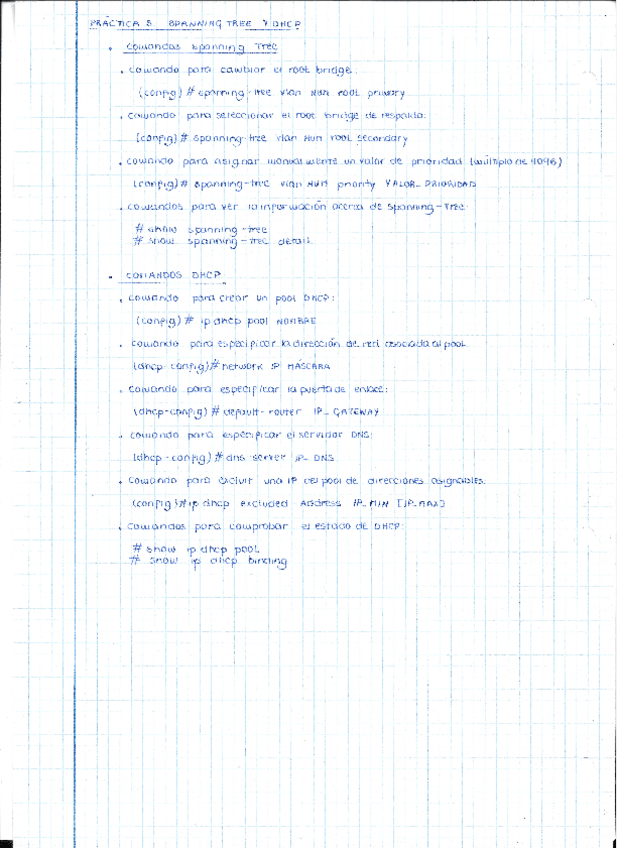 PRÁCTICA 5. SPANNING TREE Y DHCP
• Comandos Spanning Tree
. comando para cambiar el root bridge:
(config) # spanning-tree vlan NUM root primary
. comando para seleccionar el root bridge de respaldo:
(config) # spanning-tree vlan NUM root secondary
. comando para asignar manualmente un valor de prioridad (múltiplo de 4096)
(config) # spanning-tree vlan NUM priority VALOR_PRIORIDAD
. comandos para ver la información acerca de Spanning-Tree:
# show spanning-tree
# show spanning-tree detail
• COMANDOS DHCP
. comando para crear un pool DHCP:
(config) # ip dhcp pool NOMBRE
. comando para especificar la dirección de red asociada al pool
(dhcp-config) # network IP MÁSCARA
. comando para especificar la puerta de enlace:
(dhcp-config) # default-router IP_GATEWAY
. comando para especificar el servidor DNS:
(dhcp-config) # dns-server IP_DNS
. comando para excluir una IP del pool de direcciones asignables.
(config) # ip dhcp excluded Address IP_MIN [IP_MAX]
. comandos para comprobar el estado de DHCP:
# show ip dhcp pool
# show ip dhcp binding